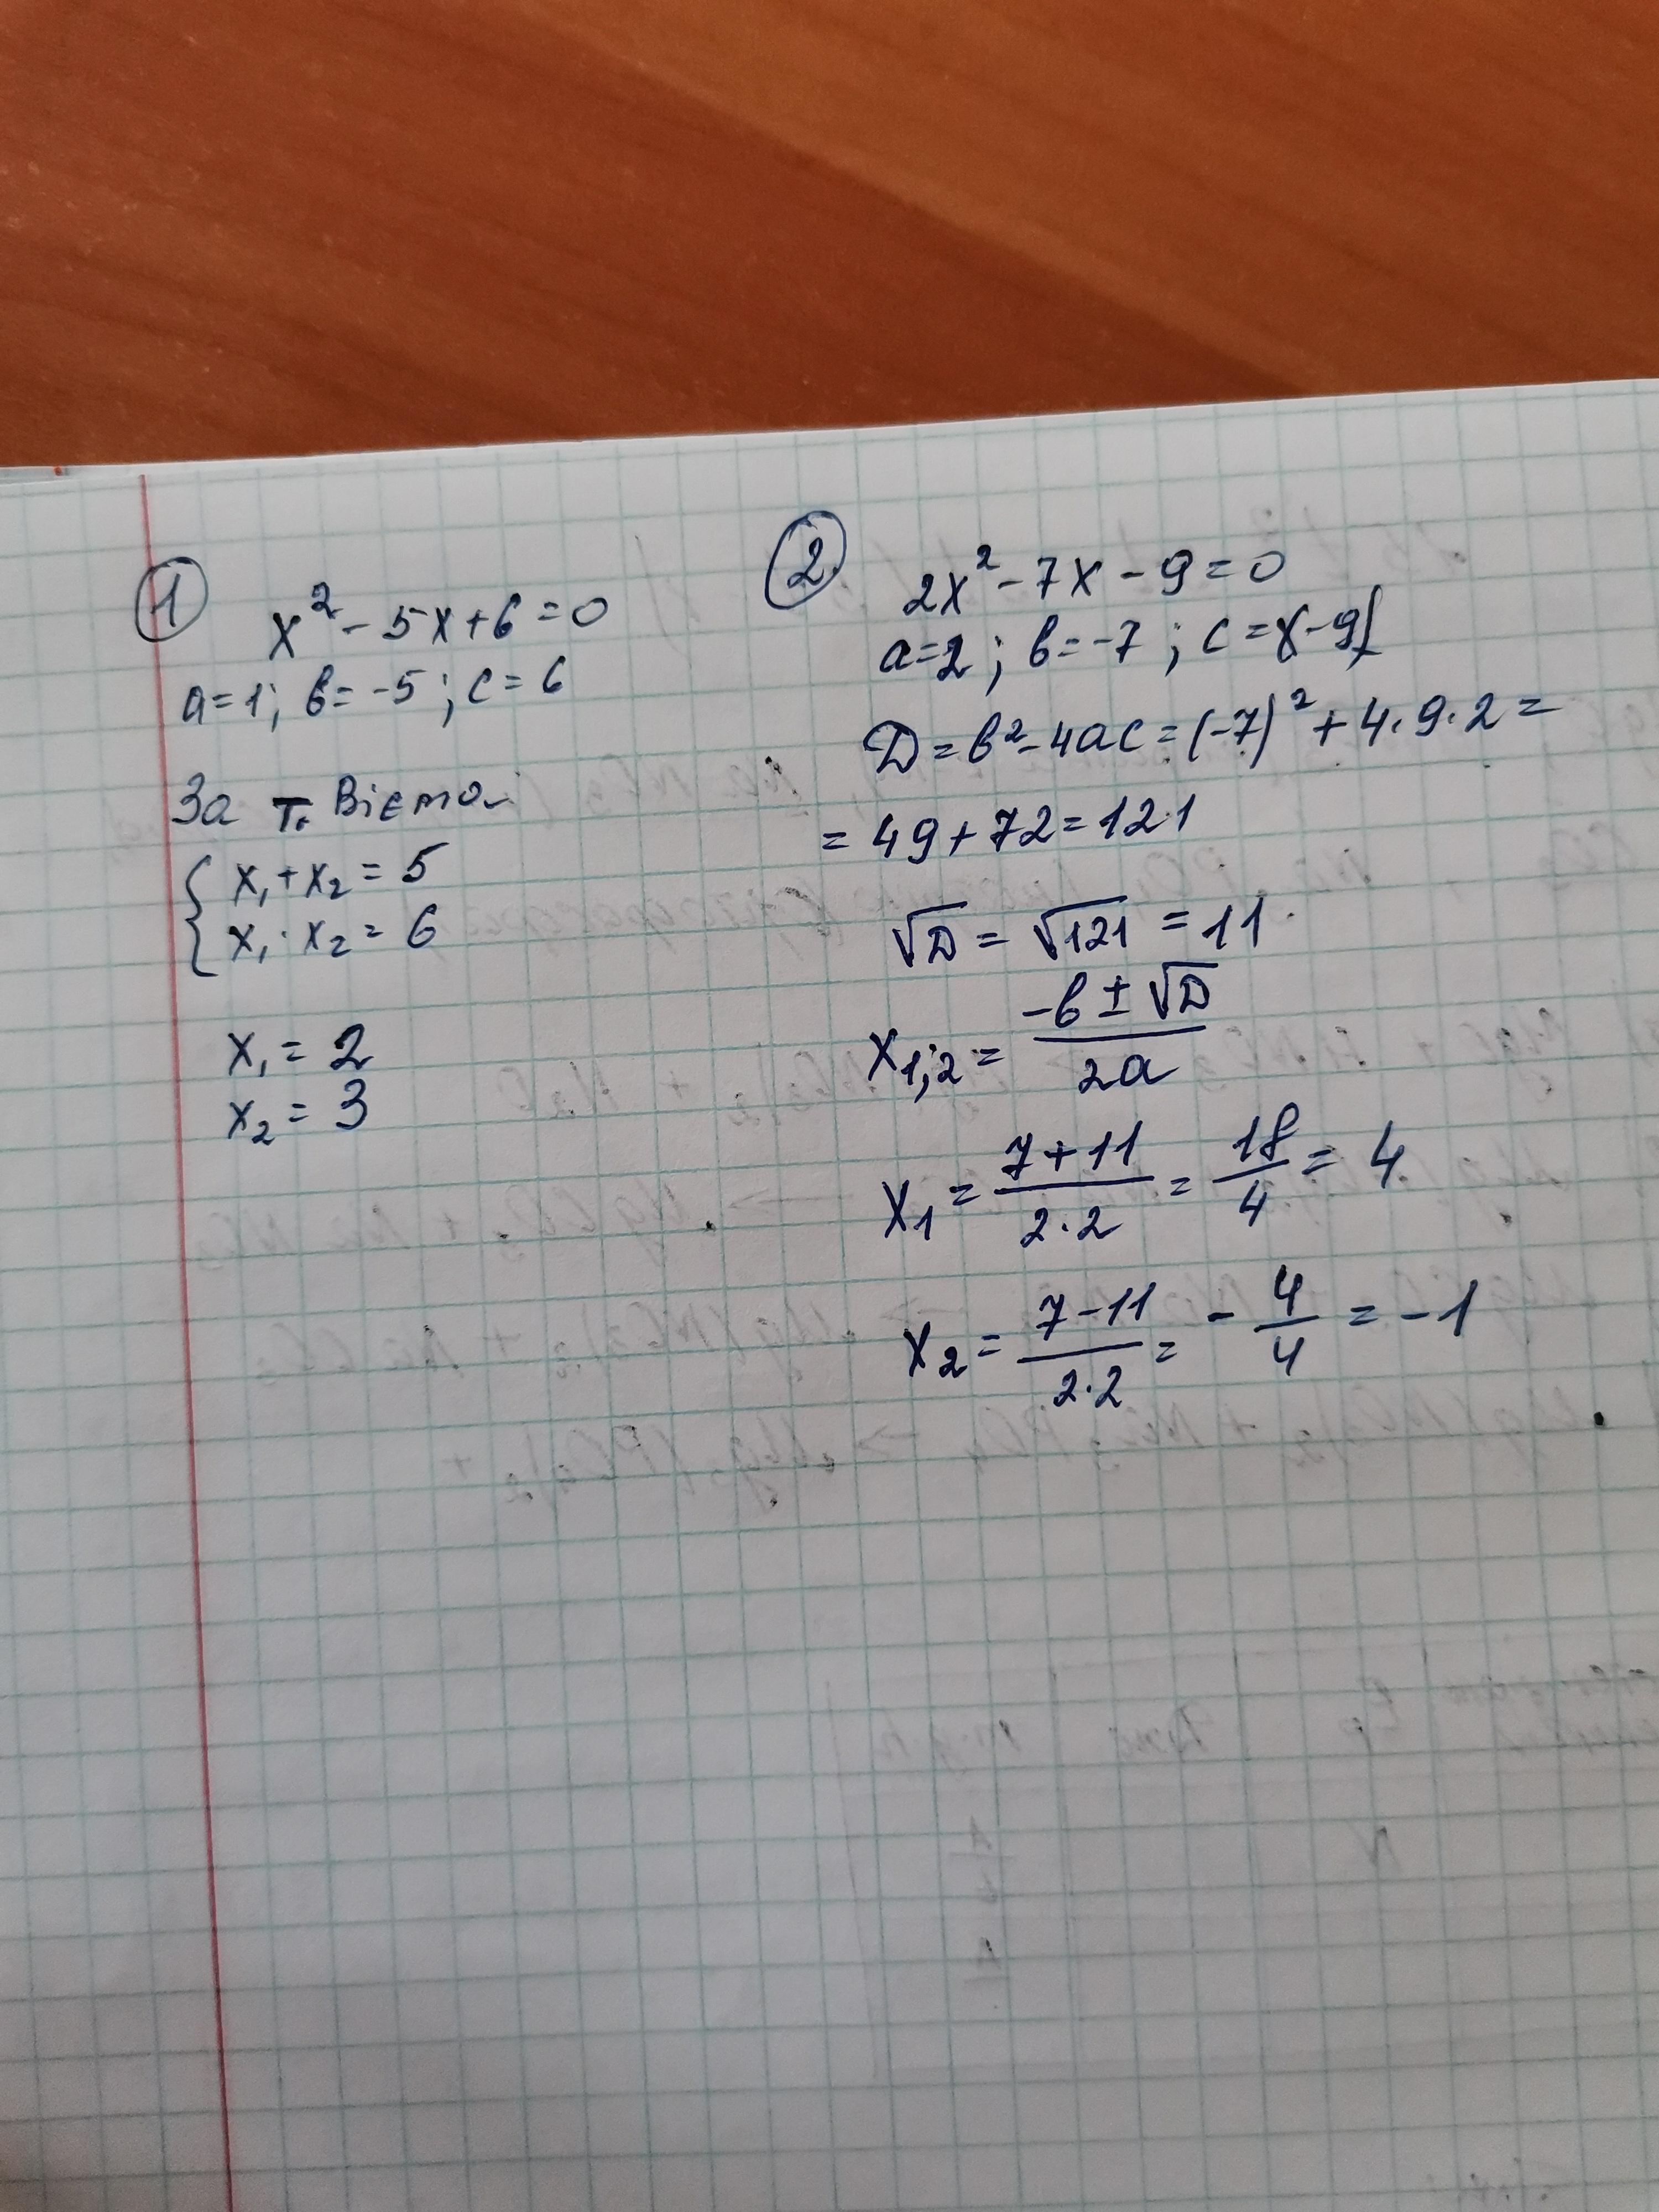 ①
x² - 5x + 6 = 0
a = 1; b = -5; c = 6
За т. Вієта
{ x₁ + x₂ = 5
x₁ · x₂ = 6
x₁ = 2
x₂ = 3
②
2x² - 7x - 9 = 0
a = 2; b = -7; c = -9
D = b² - 4ac = (-7)² + 4·9·2 =
= 49 + 72 = 121
√D = √121 = 11
x₁;₂ = (-b ± √D) / 2a
x₁ = (7 + 11) / (2·2) = 18/4 = 4
x₂ = (7 - 11) / (2·2) = - 4/4 = -1